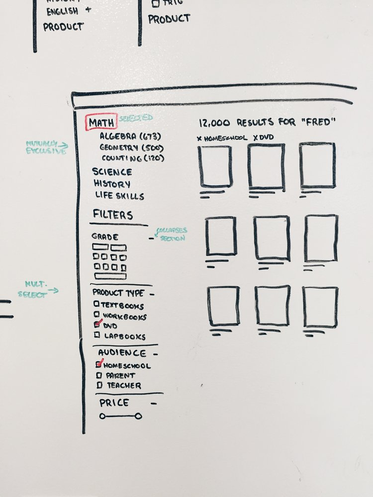 ENGLISH +
PRODUCT
TRIG
PRODUCT
MATH SELECTED
MUTUALLY EXCLUSIVE
ALGEBRA (673)
GEOMETRY (500)
COUNTING (120)
SCIENCE
HISTORY
LIFE SKILLS
FILTERS
GRADE -
COLLAPSES
SECTION
MULTI-
SELECT
PRODUCT TYPE -
TEXTBOOKS
WORKBOOKS
DVD
LAPBOOKS
AUDIENCE -
HOMESCHOOL
PARENT
TEACHER
PRICE -
12,000 RESULTS FOR "FRED"
X HOMESCHOOL X DVD